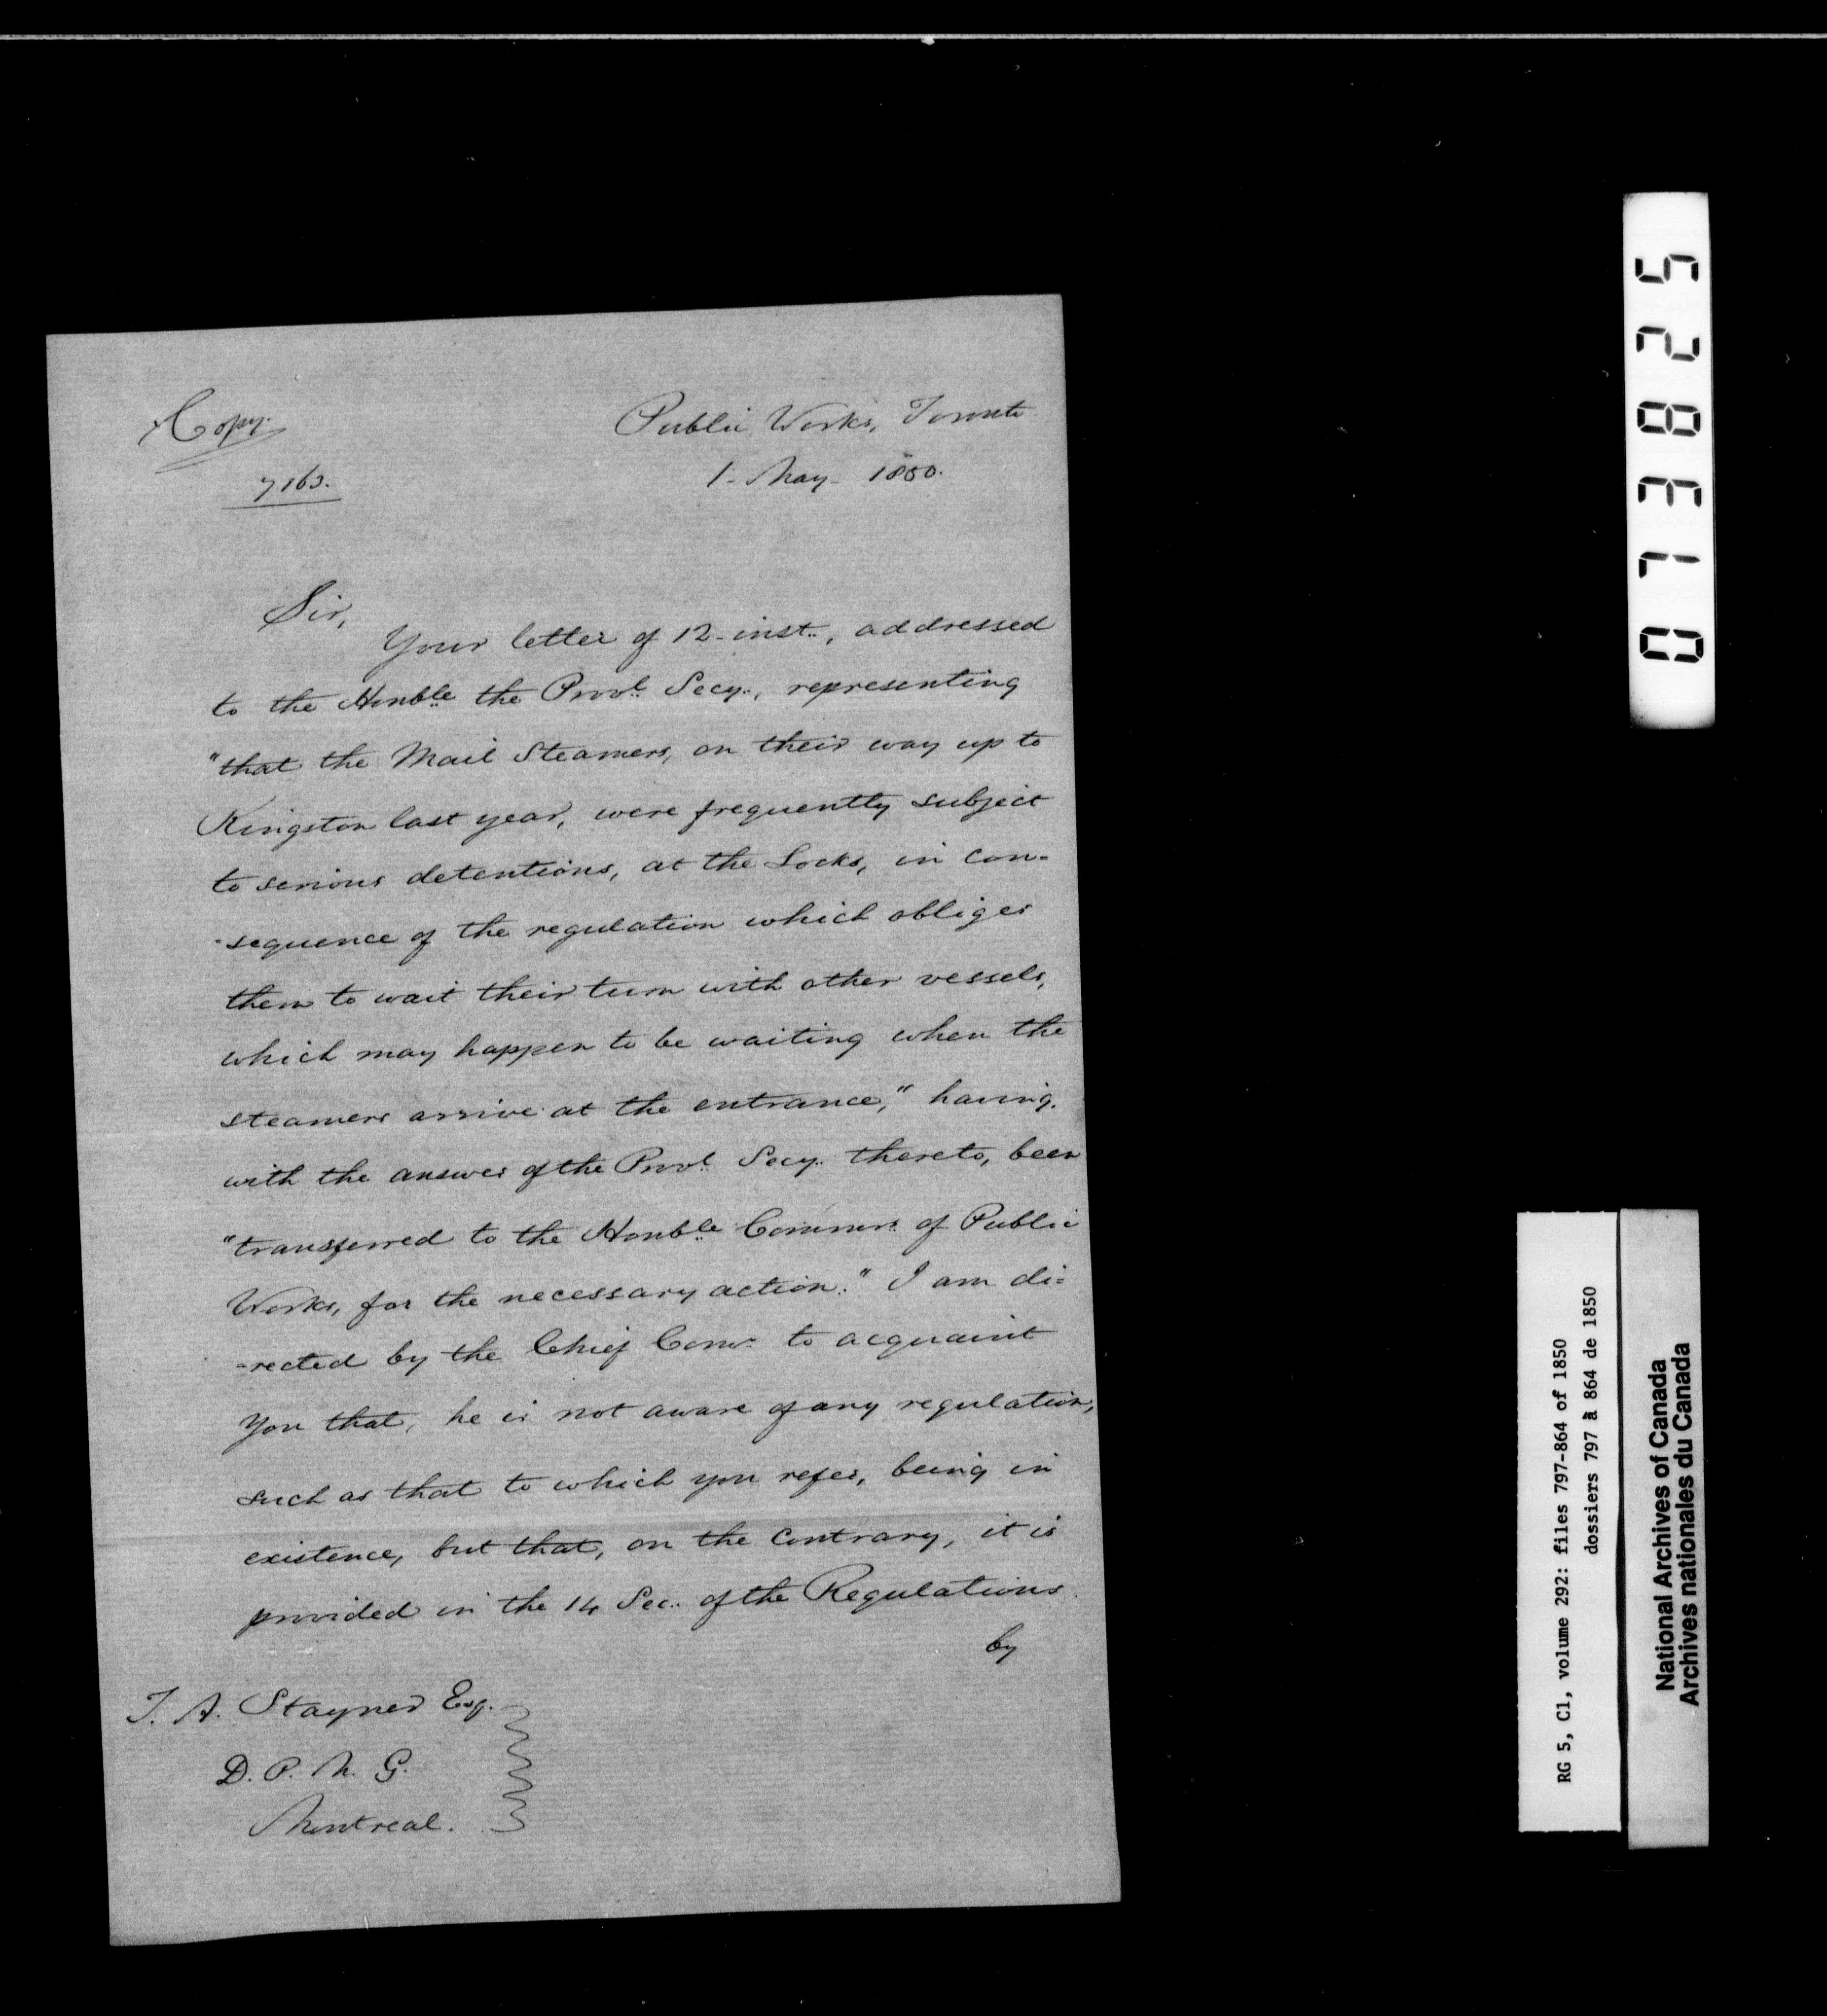 Copy.
Public Works, Toronto
7163.
1 - May - 1850.
Sir,
Your letter of 12 - inst., addressed
to the Honble the Provl. Secy., representing
"that the Mail Steamers, on their way up to
Kingston last year, were frequently subject
to serious detentions, at the Locks, in con-
-sequence of the regulation which obliges
them to wait their turn with other vessels,
which may happen to be waiting when the
steamers arrive at the entrance," having,
with the answer of the Provl. Secy. thereto, been
"transferred to the Honble Commrs. of Public
Works, for the necessary action." I am di-
-rected by the Chief Comr. to acquaint
you that, he is not aware of any regulation,
such as that to which you refer, being in
existence, but that, on the contrary, it is
provided in the 14 Sec. of the Regulations
by
T. A. Stayner Esq.
D. P. M. G.
Montreal.
073825
RG 5, C1, volume 292: files 797-864 of 1850
dossiers 797 à 864 de 1850
National Archives of Canada
Archives nationales du Canada